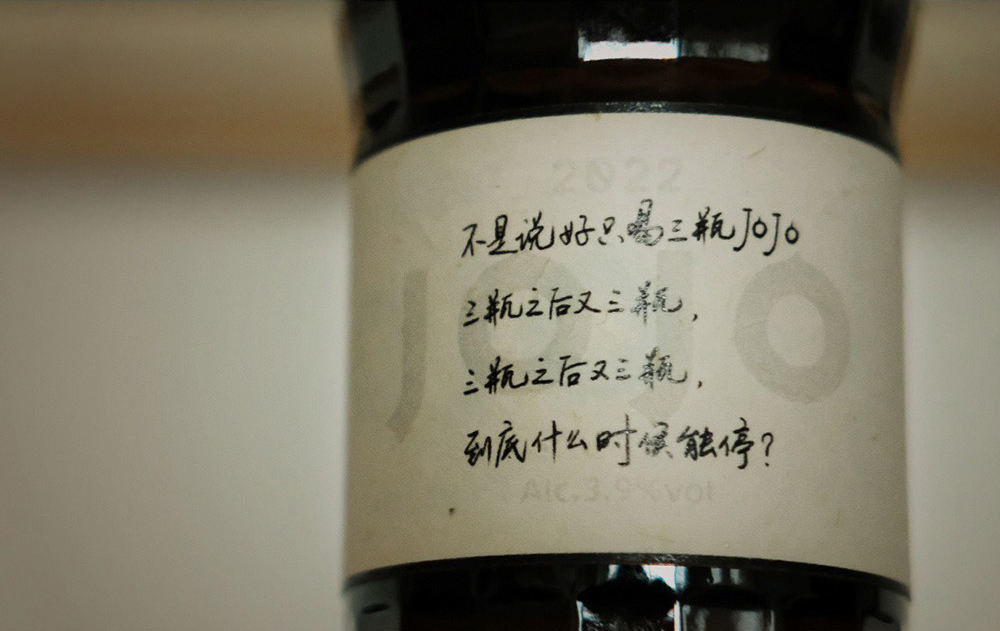 2022
不是说好只喝三瓶JOJO
三瓶之后又三瓶,
JOJO
三瓶之后又三瓶,
到底什么时候能停?
Alc.3.9%vol